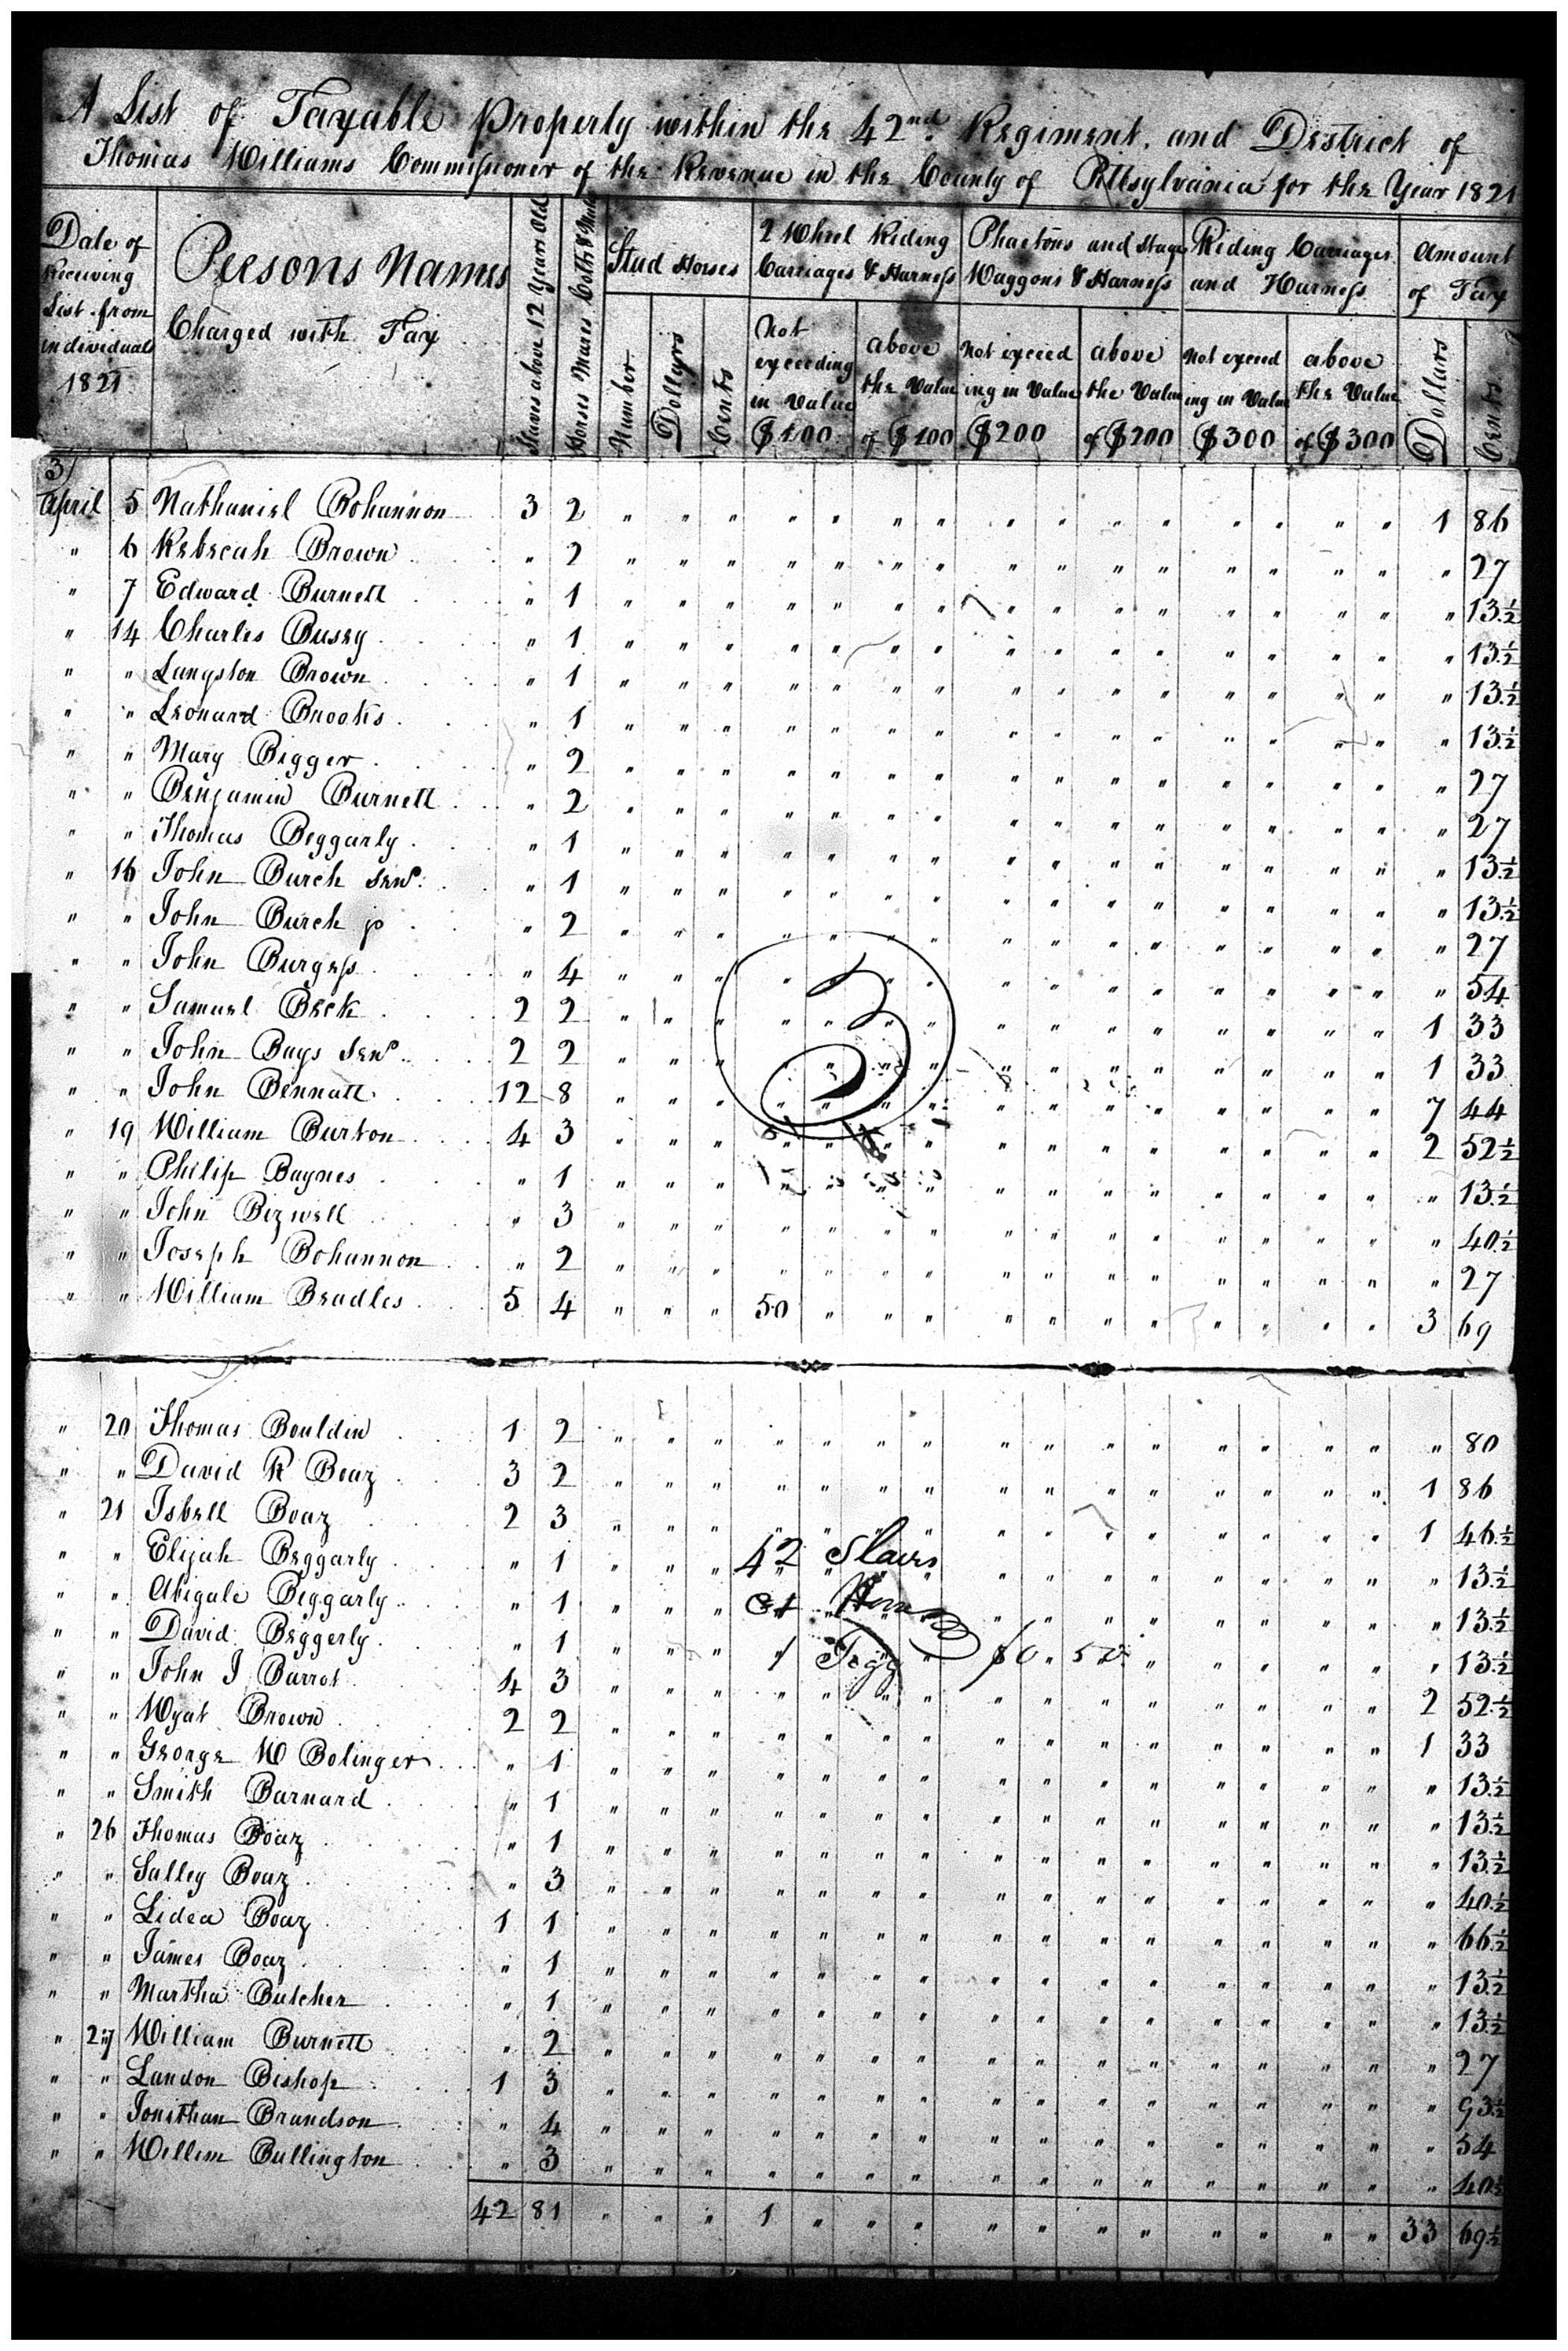 A List of Taxable Property within the 42nd Regiment, and District of
Thomas Williams Commissioner of the Revenue in the County of Pittsylvania for the Year 1821
Date of Receiving List from individuals 1821
Persons Names Charged with Tax
Slaves above 12 Years Old
Horses Mares Colts & Mules
Stud Horses Number Dollers Cents
2 Wheel Riding Carriages & Harness Not exceeding in Value $100 above the Value of $100
Phaetons and Stage Waggons & Harness Not exceeding in Value $200 above the Value of $200
Riding Carriages and Harness Not exceeding in Value $300 above the Value of $300
Amount of Tax Dollars Cents
3/
April 5 Nathaniel Bohannon 3 2 " " " " " " " " " " " " " " " 1 86
" 6 Rebecah Brown " 2 " " " " " " " " " " " " " " " " 27
" 7 Edward Burnett " 1 " " " " " " " " " " " " " " " " 13½
" 14 Charles Bussy " 1 " " " " " " " " " " " " " " " " 13½
" " Langston Brown " 1 " " " " " " " " " " " " " " " " 13½
" " Leonard Brooks " 1 " " " " " " " " " " " " " " " " 13½
" " Mary Bigger " 2 " " " " " " " " " " " " " " " " 27
" " Benjamin Burnett " 2 " " " " " " " " " " " " " " " " 27
" " Thomas Beggarly " 1 " " " " " " " " " " " " " " " " 13½
" 16 John Burch Senr. " 1 " " " " " " " " " " " " " " " " 13½
" " John Burch jr " 2 " " " " " " " " " " " " " " " " 27
" " John Burgess " 4 " " " " " " " " " " " " " " " " 54
" " Samuel Beck 2 2 " " " " " " " " " " " " " " " 1 33
" " John Bays Senr. 2 2 " " " " " " " " " " " " " " " 1 33
" " John Bennatt 12 8 " " " " " " " " " " " " " " " 7 44
3
" 19 William Burton 4 3 " " " " " " " " " " " " " " " 2 52½
" " Philip Baynes " 1 " " " " " " " " " " " " " " " " 13½
" " John Bizwell " 3 " " " " " " " " " " " " " " " " 40½
" " Joseph Bohannon " 2 " " " " " " " " " " " " " " " " 27
" " William Beadles 5 4 " " " 50 " " " " " " " " " " " 3 69
" 20 Thomas Bouldin 1 2 " " " " " " " " " " " " " " " " 80
" " David R Boaz 3 2 " " " " " " " " " " " " " " " 1 86
" 21 Isbell Boaz 2 3 " " " " " " " " " " " " " " " 1 46½
" " Elijah Beggarly " 1 " " " 42 Slaves " " " " " " " " " 13½
" " Abigale Beggarly " 1 " " " " " " " " " " " " " 13½
" " David Beggerly " 1 " " " 1 " " 50 " " " " " " 13½
" " John J Barrot 4 3 " " " " " " " " " " " " " " " 2 52½
" " Wyat Brown 2 2 " " " " " " " " " " " " " " " 1 33
" " George W Bolinger " 1 " " " " " " " " " " " " " " " " 13½
" " Smith Barnard " 1 " " " " " " " " " " " " " " " " 13½
" 26 Thomas Boaz " 1 " " " " " " " " " " " " " " " " 13½
" " Salley Boaz " 3 " " " " " " " " " " " " " " " " 40½
" " Lidea Boaz 1 1 " " " " " " " " " " " " " " " " 66½
" " James Boaz " 1 " " " " " " " " " " " " " " " " 13½
" " Martha Butcher " 1 " " " " " " " " " " " " " " " " 13½
" 27 William Burnett " 2 " " " " " " " " " " " " " " " " 27
" " Landon Bishop 1 3 " " " " " " " " " " " " " " " " 93½
" " Jonithan Brandson " 4 " " " " " " " " " " " " " " " " 54
" " Willim Bullington " 3 " " " " " " " " " " " " " " " " 40½
42 81 " " " 1 " " " " " " " " " " " 33 69½